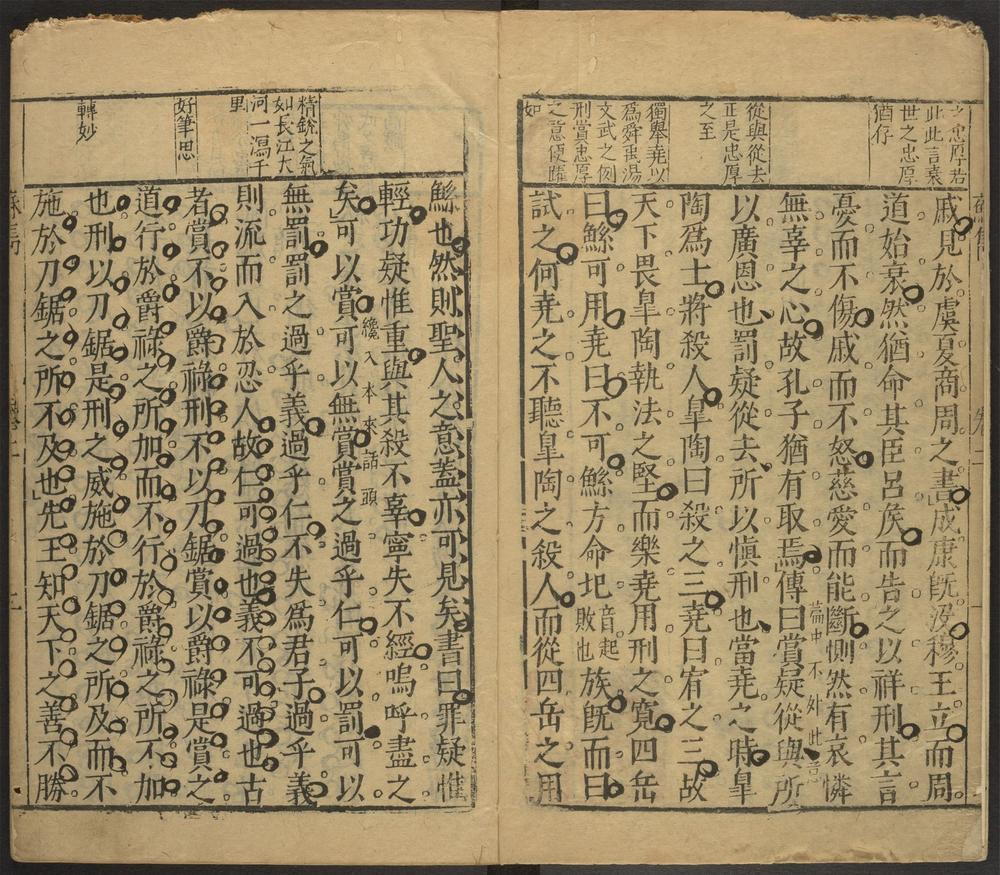 之忠厚若
此此言衰
世之忠厚
猶存
從與從去
正是忠厚
之至
獨舉堯以
爲舜禹湯
文武之例
刑賞忠厚
之意便曄
如
戚見於虞夏商周之書成康旣沒穆王立而周
道始衰然猶命其臣呂侯而告之以祥刑其言
憂而不傷戚而不怒慈愛而能斷惻然有哀憐
無辜之心故孔子猶有取焉傳曰賞疑從與所
篇中不外此意
以廣恩也罰疑從去所以愼刑也當堯之時皐
陶爲士將殺人皐陶曰殺之三堯曰宥之三故
天下畏皐陶執法之堅而樂堯用刑之寬四岳
曰鯀可用堯曰不可鯀方命圯音起敗也族旣而曰
試之何堯之不聽皐陶之殺人而從四岳之用
精銳之氣
如長江大
河一瀉千
里
好筆思
轉妙
鯀也然則聖人之意蓋亦可見矣書曰罪疑惟
輕功疑惟重與其殺不辜寧失不經嗚呼盡之
纔入本來話頭
矣可以賞可以無賞賞之過乎仁可以罰可以
無罰罰之過乎義過乎仁不失爲君子過乎義
則流而入於忍人故仁可過也義不可過也古
者賞不以爵祿刑不以刀鋸賞以爵祿是賞之
道行於爵祿之所加而不行於爵祿之所不加
也刑以刀鋸是刑之威施於刀鋸之所及而不
施於刀鋸之所不及也先王知天下之善不勝